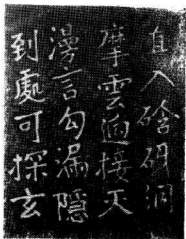 直入砑洞
摩雲逈接天
漫言勾漏隱
到處可探玄